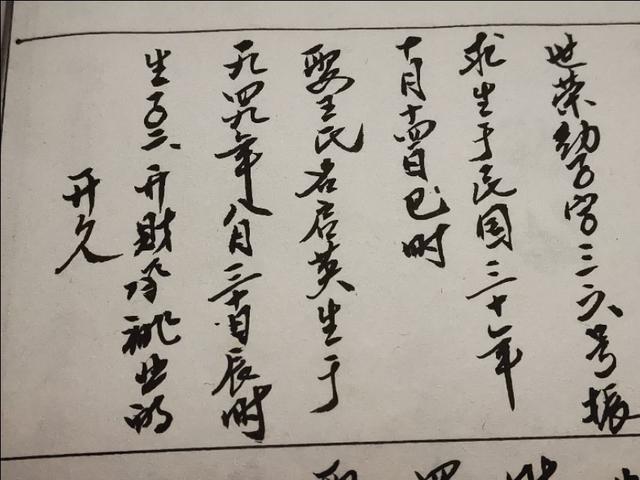 世荣幼子字三六号振
求生于民国三十年
十月十四日巳时
娶王氏名启英生于
一九四九年八月三十日辰时
生子二开财承祧世的
开久